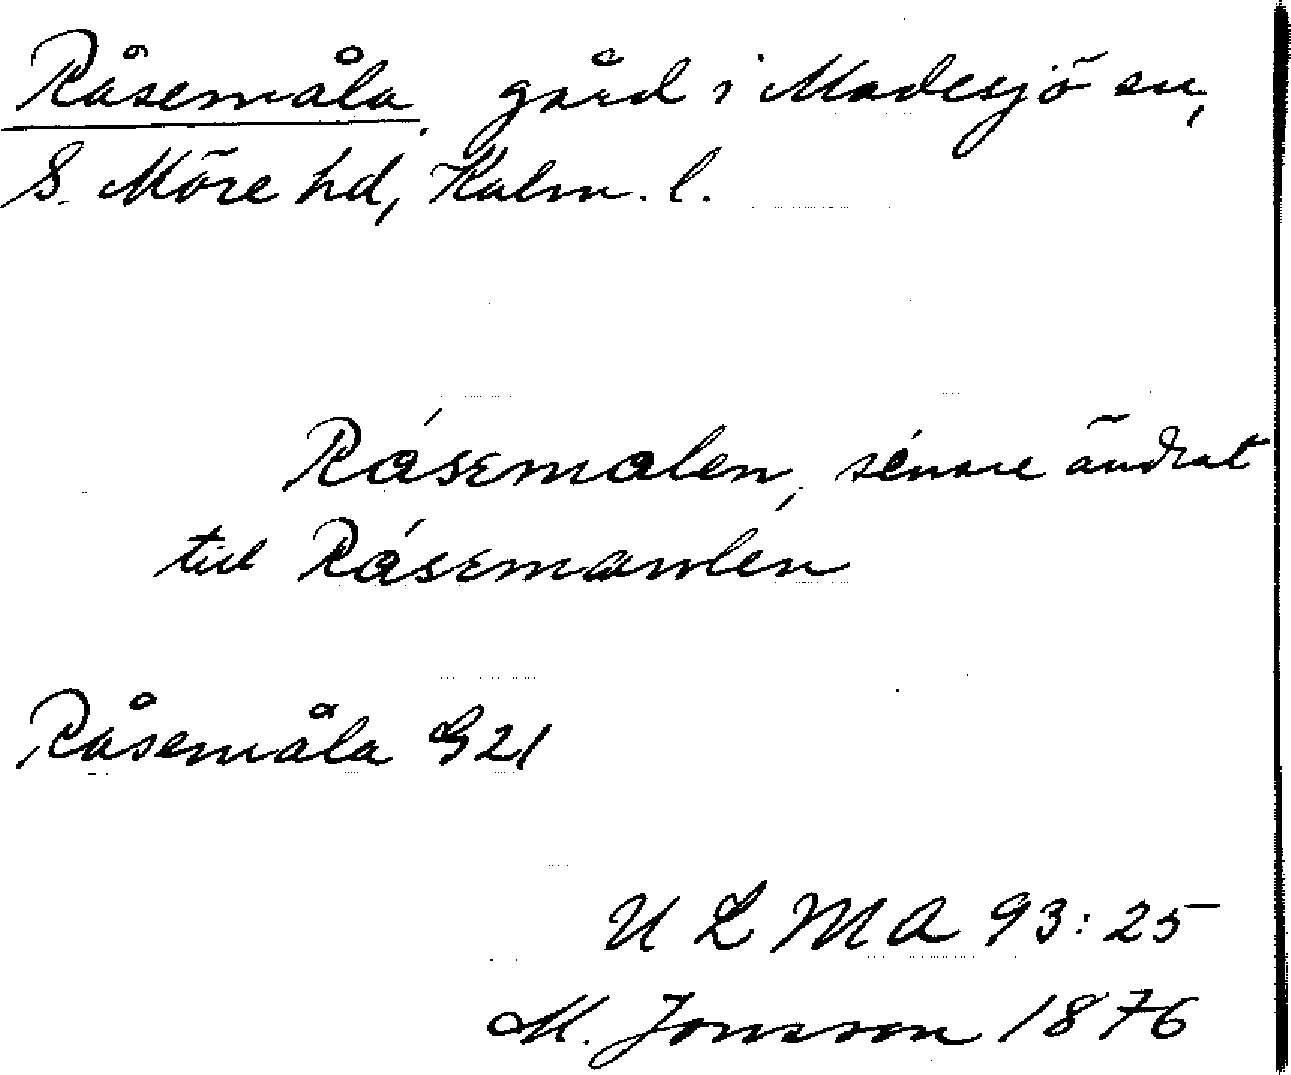 Råsemåla, gård i Madesjö sn,
S. Möre hd, Kalm. l.
Rásemalen, senare ändrat
till Rásemamlen
Råsemåla G21
U L M A 93:25
M. Jonsson 1876